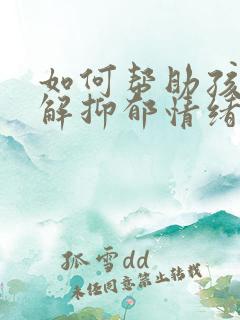 如何帮助孩
解抑郁情绪
孤雪dd
未经同意禁止转载